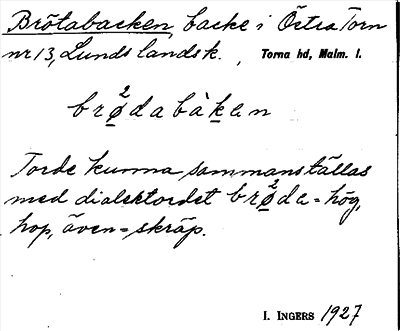 Brötabacken, backe i Östra Torn
nr 13, Lunds landsk. , Torna hd, Malm. l.
brø²dabàken
Torde kunna sammanställas
med dialektordet brø²da = hög,
hop, även = skräp.
I. INGERS 1927